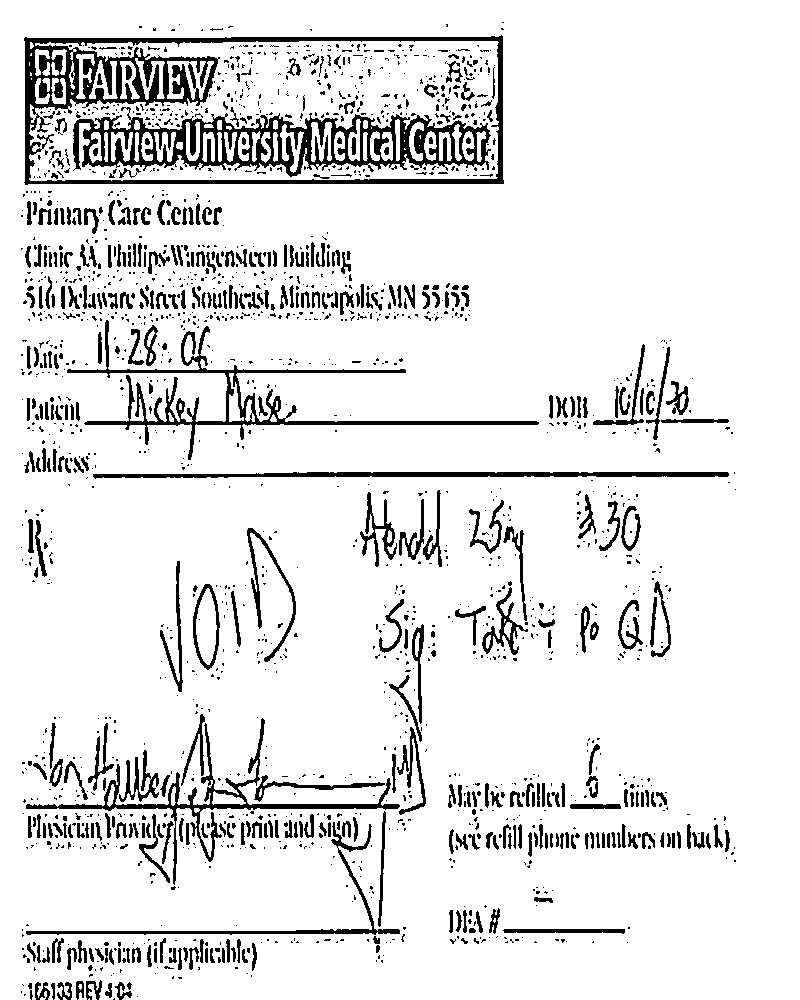 FAIRVIEW
Fairview-University Medical Center
Primary Care Center
Clinic 3A, Phillips-Wangensteen Building
516 Delaware Street Southeast, Minneapolis, MN 55455
Date 11·28·06
Patient Mickey Mouse DOB 10/10/30
Address
Rx Atenolol 25mg #30
VOID Sig: Take T Po QD
Jon Hallberg, MD
May be refilled 6 times
Physician Provider (please print and sign)
(see refill phone numbers on back)
DEA # —
Staff physician (if applicable)
166133 REV 4/04